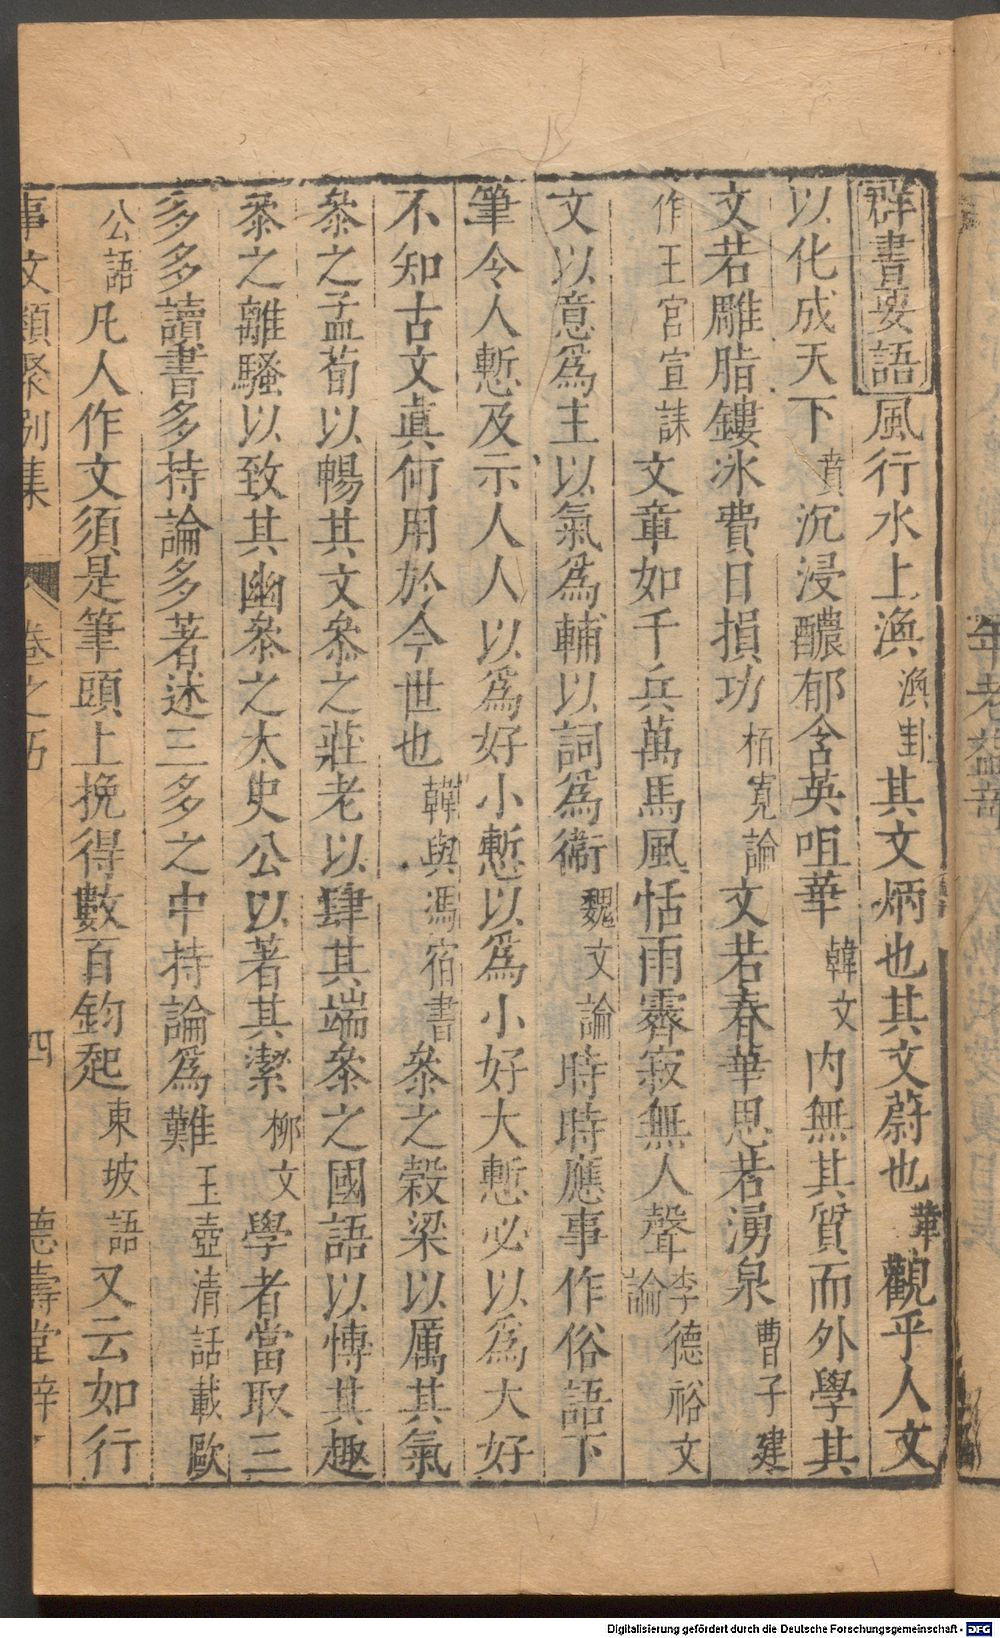 群書要語風行水上渙渙卦其文炳也其文蔚也革觀乎人文
以化成天下賁沉浸醲郁含英咀華韓文内無其質而外學其
文若雕脂鏤冰費日損功栢寛論文若春華思若湧泉曹子建
作王宮宣誄文章如千兵萬馬風恬雨霽寂無人聲李德裕文論
文以意爲主以氣爲輔以詞爲衞魏文論時時應事作俗語下
筆令人慙及示人人以爲好小慙以爲小好大慙必以爲大好
不知古文眞何用於今世也韓與馮宿書叅之穀梁以厲其氣
叅之孟荀以暢其文叅之莊老以肆其端叅之國語以愽其趣
叅之離騷以致其幽叅之太史公以著其潔柳文學者當取三
多多讀書多持論多著述三多之中持論爲難玉壺清話載歐
公語凡人作文須是筆頭上挽得數百鈞起東坡語又云如行
事文類聚別集 卷之五 四 德壽堂梓
Digitalisierung gefördert durch die Deutsche Forschungsgemeinschaft - DFG